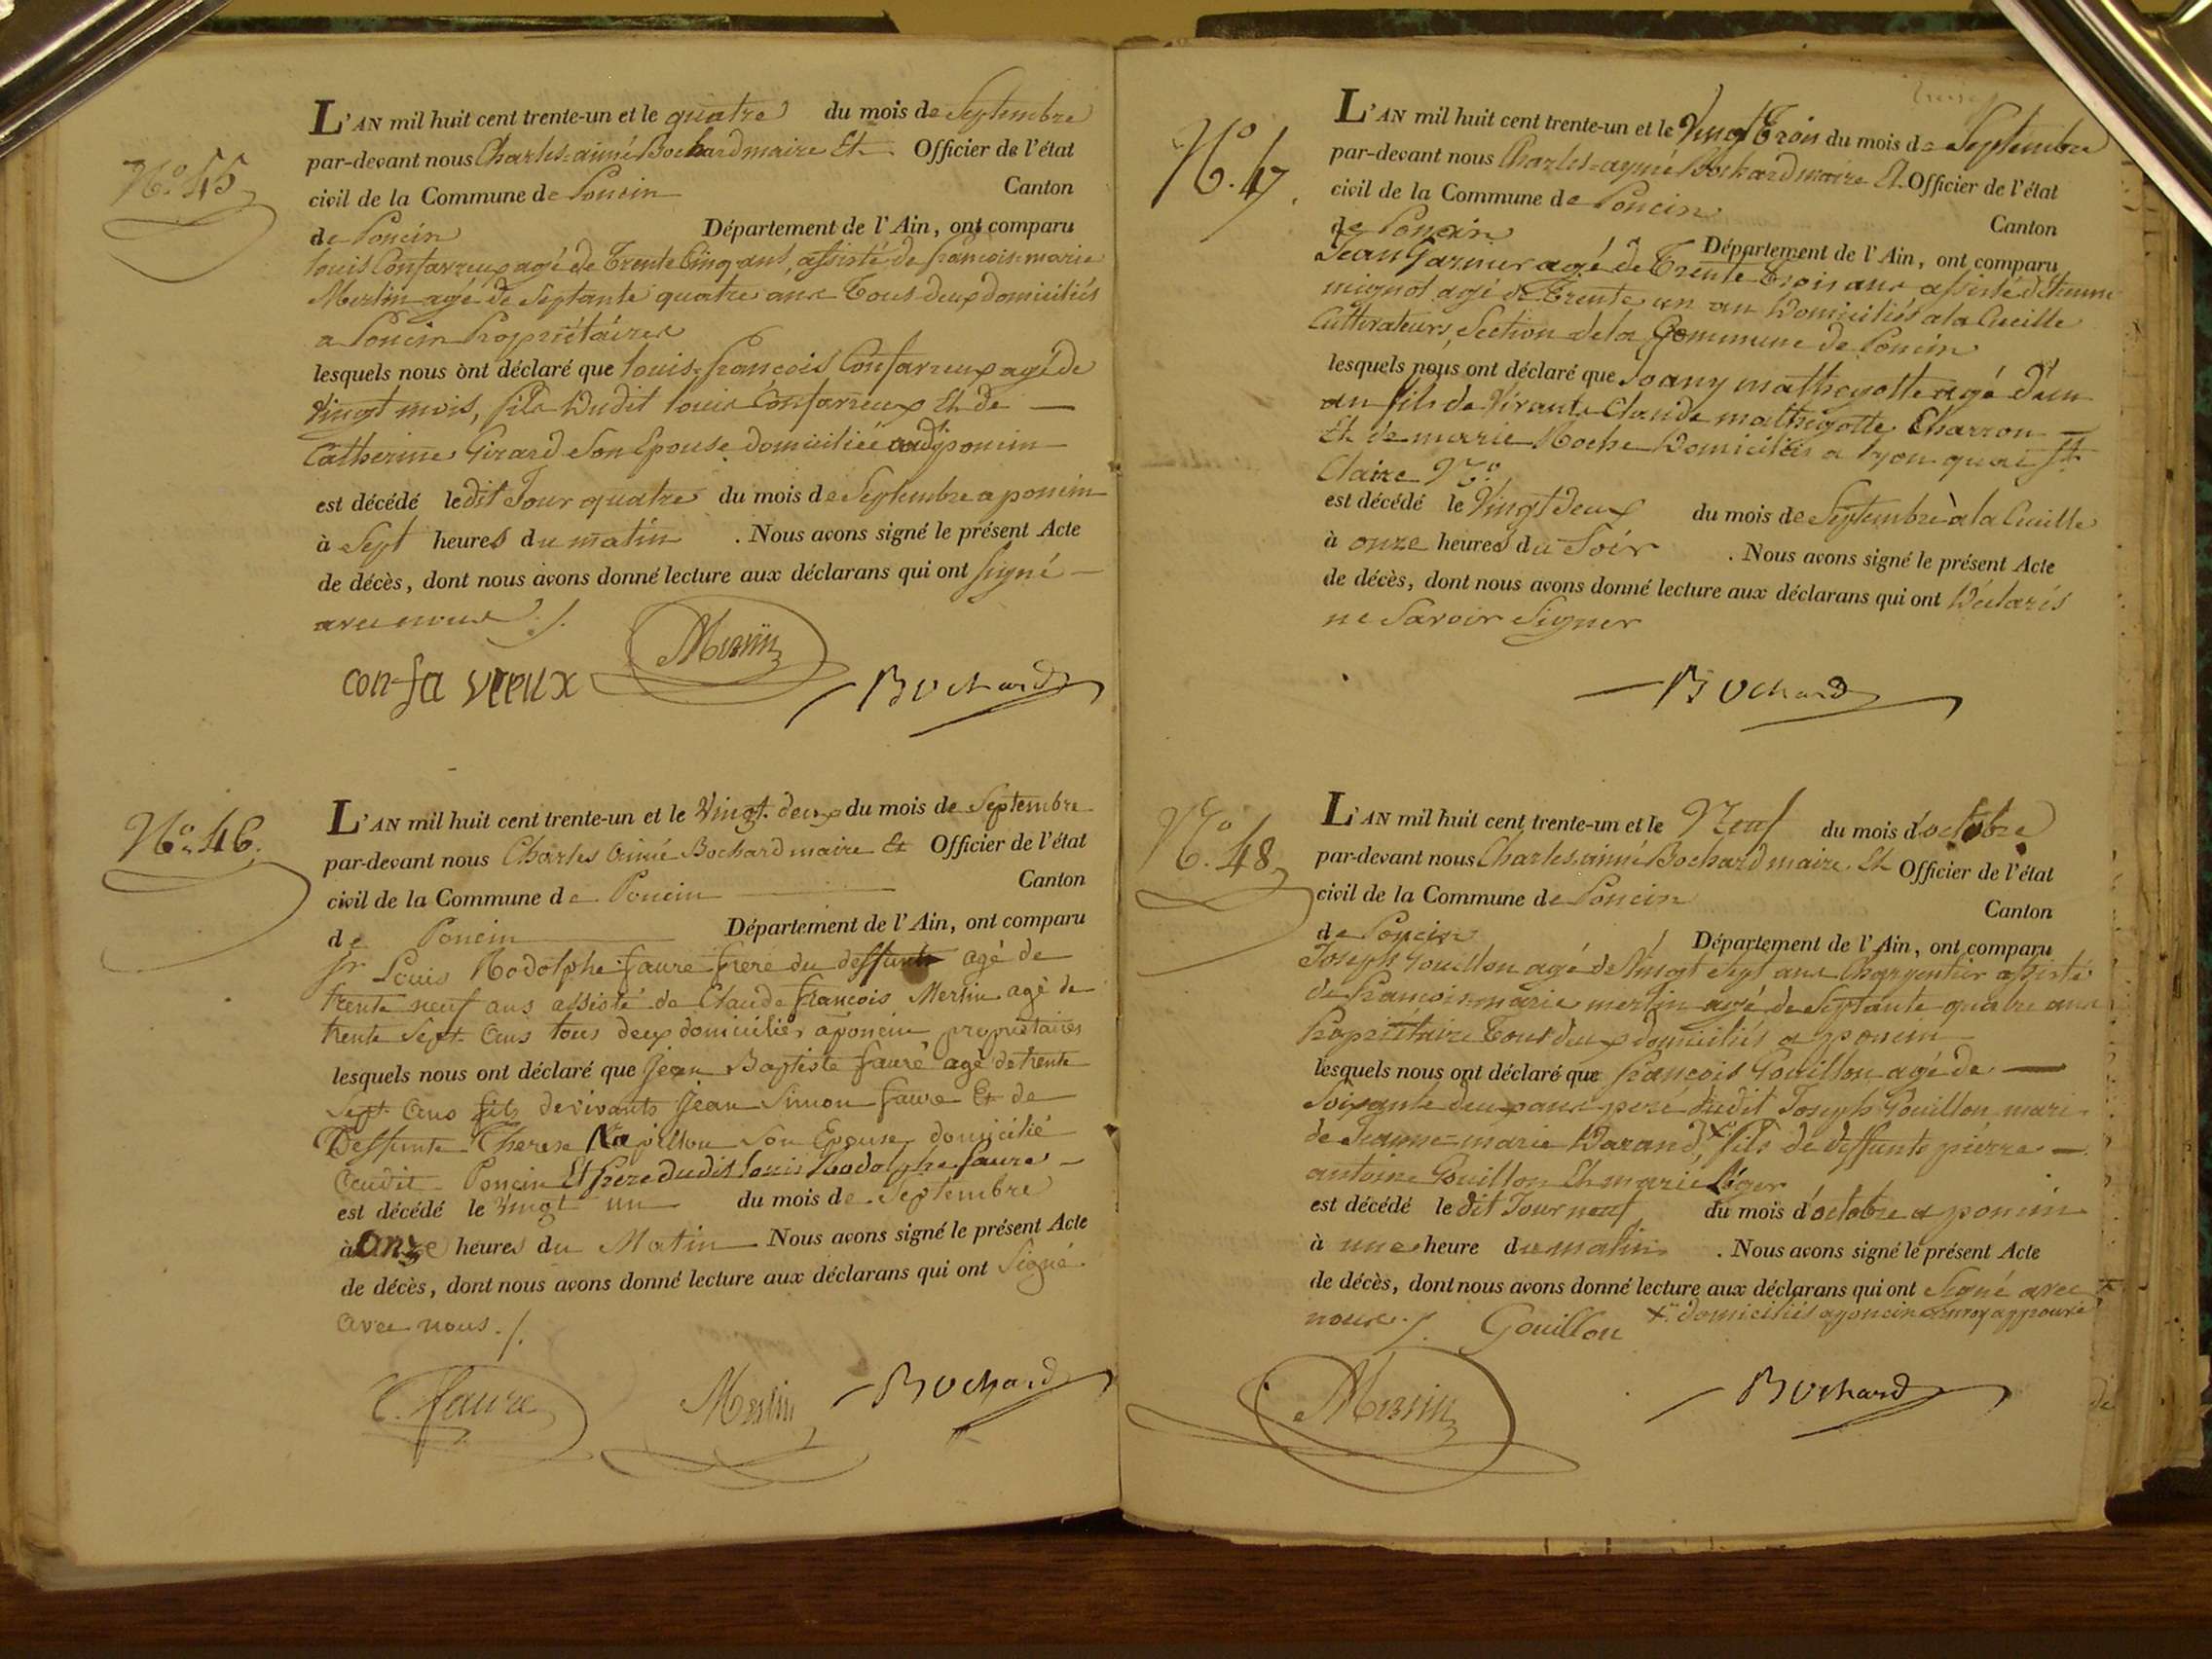 N.° 45
L'AN mil huit cent trente-un et le quatre du mois de Septembre
par-devant nous Charles=aimé Bochard maire Et Officier de l'état
civil de la Commune de Poncin Canton
de Poncin Département de l'Ain, ont comparu
louis Confavreux agé de Trente Cinq ans, assisté de francois marie
Merlin agé de Septante quatre ans Tous deux domiciliés
a Poncin Propriétaires
lesquels nous ont déclaré que louis=françois Confavreux agé de
Vingt mois, fils Dudit louis Confavreux Et de
Catherine Girard Son Epouse domiciliée audit poncin
est décédé le dit Jour quatre du mois de Septembre a poncin
à Sept heures du matin . Nous avons signé le présent Acte
de décès, dont nous avons donné lecture aux déclarans qui ont signé
avec nous ./.
confavreux Merlin Bochard
N.° 46.
L'AN mil huit cent trente-un et le Vingt deux du mois de Septembre
par-devant nous Charles Aimé Bochard maire Et Officier de l'état
civil de la Commune de Poncin Canton
de Poncin Département de l'Ain, ont comparu
Sr Louis Rodolphe faure frere du deffunt agé de
trente neuf ans assisté de Claude francois Merlin agé de
trente Sept ans tous deux domiciliés a poncin propriétaires
lesquels nous ont déclaré que Jean Baptiste faure agé de trente
Sept ans fils de vivants Jean Simon faure Et de
Deffunte Therese Son Epouse domicilié
audit Poncin Et frere dudit louis Rodolphe faure
est décédé le Vingt un du mois de Septembre
à onze heures du Matin Nous avons signé le présent Acte
de décès, dont nous avons donné lecture aux déclarans qui ont Signé
avec nous ./.
faure Merlin Bochard
N.° 47.
L'AN mil huit cent trente-un et le Vingt Trois du mois de Septembre
par-devant nous Charles=aymé Bochard maire Et Officier de l'état
civil de la Commune de Poncin Canton
de Poncin Département de l'Ain, ont comparu
Jean Garnier agé de Trente Trois ans assisté d'Etienne
mignot agé de Trente un an Domiciliés a la Cueille
Cultivateurs, Section de la Commune de Poncin
lesquels nous ont déclaré que Joany matheyotte agé d'un
an fils de Vivants Claude matheyotte Charron
Et de marie Roche Domiciliés a lyon quai St
Claire N.°
est décédé le Vingt deux du mois de Septembre à la Cueille
à onze heures du Soir . Nous avons signé le présent Acte
de décès, dont nous avons donné lecture aux déclarans qui ont Déclarés
ne Savoir Signer
Bochard
N.° 48
L'AN mil huit cent trente-un et le Neuf du mois d'octobre
par-devant nous Charles aimé Bochard maire Et Officier de l'état
civil de la Commune de Poncin Canton
de Poncin Département de l'Ain, ont comparu
Joseph Gouillon agé de Vingt Sept ans Charpentier assisté
de francois marie merlin agé de Septante quatre ans
Propriétaire Tous deux domiciliés a poncin
lesquels nous ont déclaré que françois Gouillon agé de
Soixante deux ans pere dudit Joseph Gouillon mari
de Jeanne=marie Darand, x fils de deffunts pierre
antoine Gouillon Et marie léger
est décédé le dit Jour neuf du mois d'octobre a poncin
à une heure du matin . Nous avons signé le présent Acte
de décès, dont nous avons donné lecture aux déclarans qui ont Signé avec
nous ./. Gouillon x domiciliés a poncin renvoy approuvé
Merlin Bochard